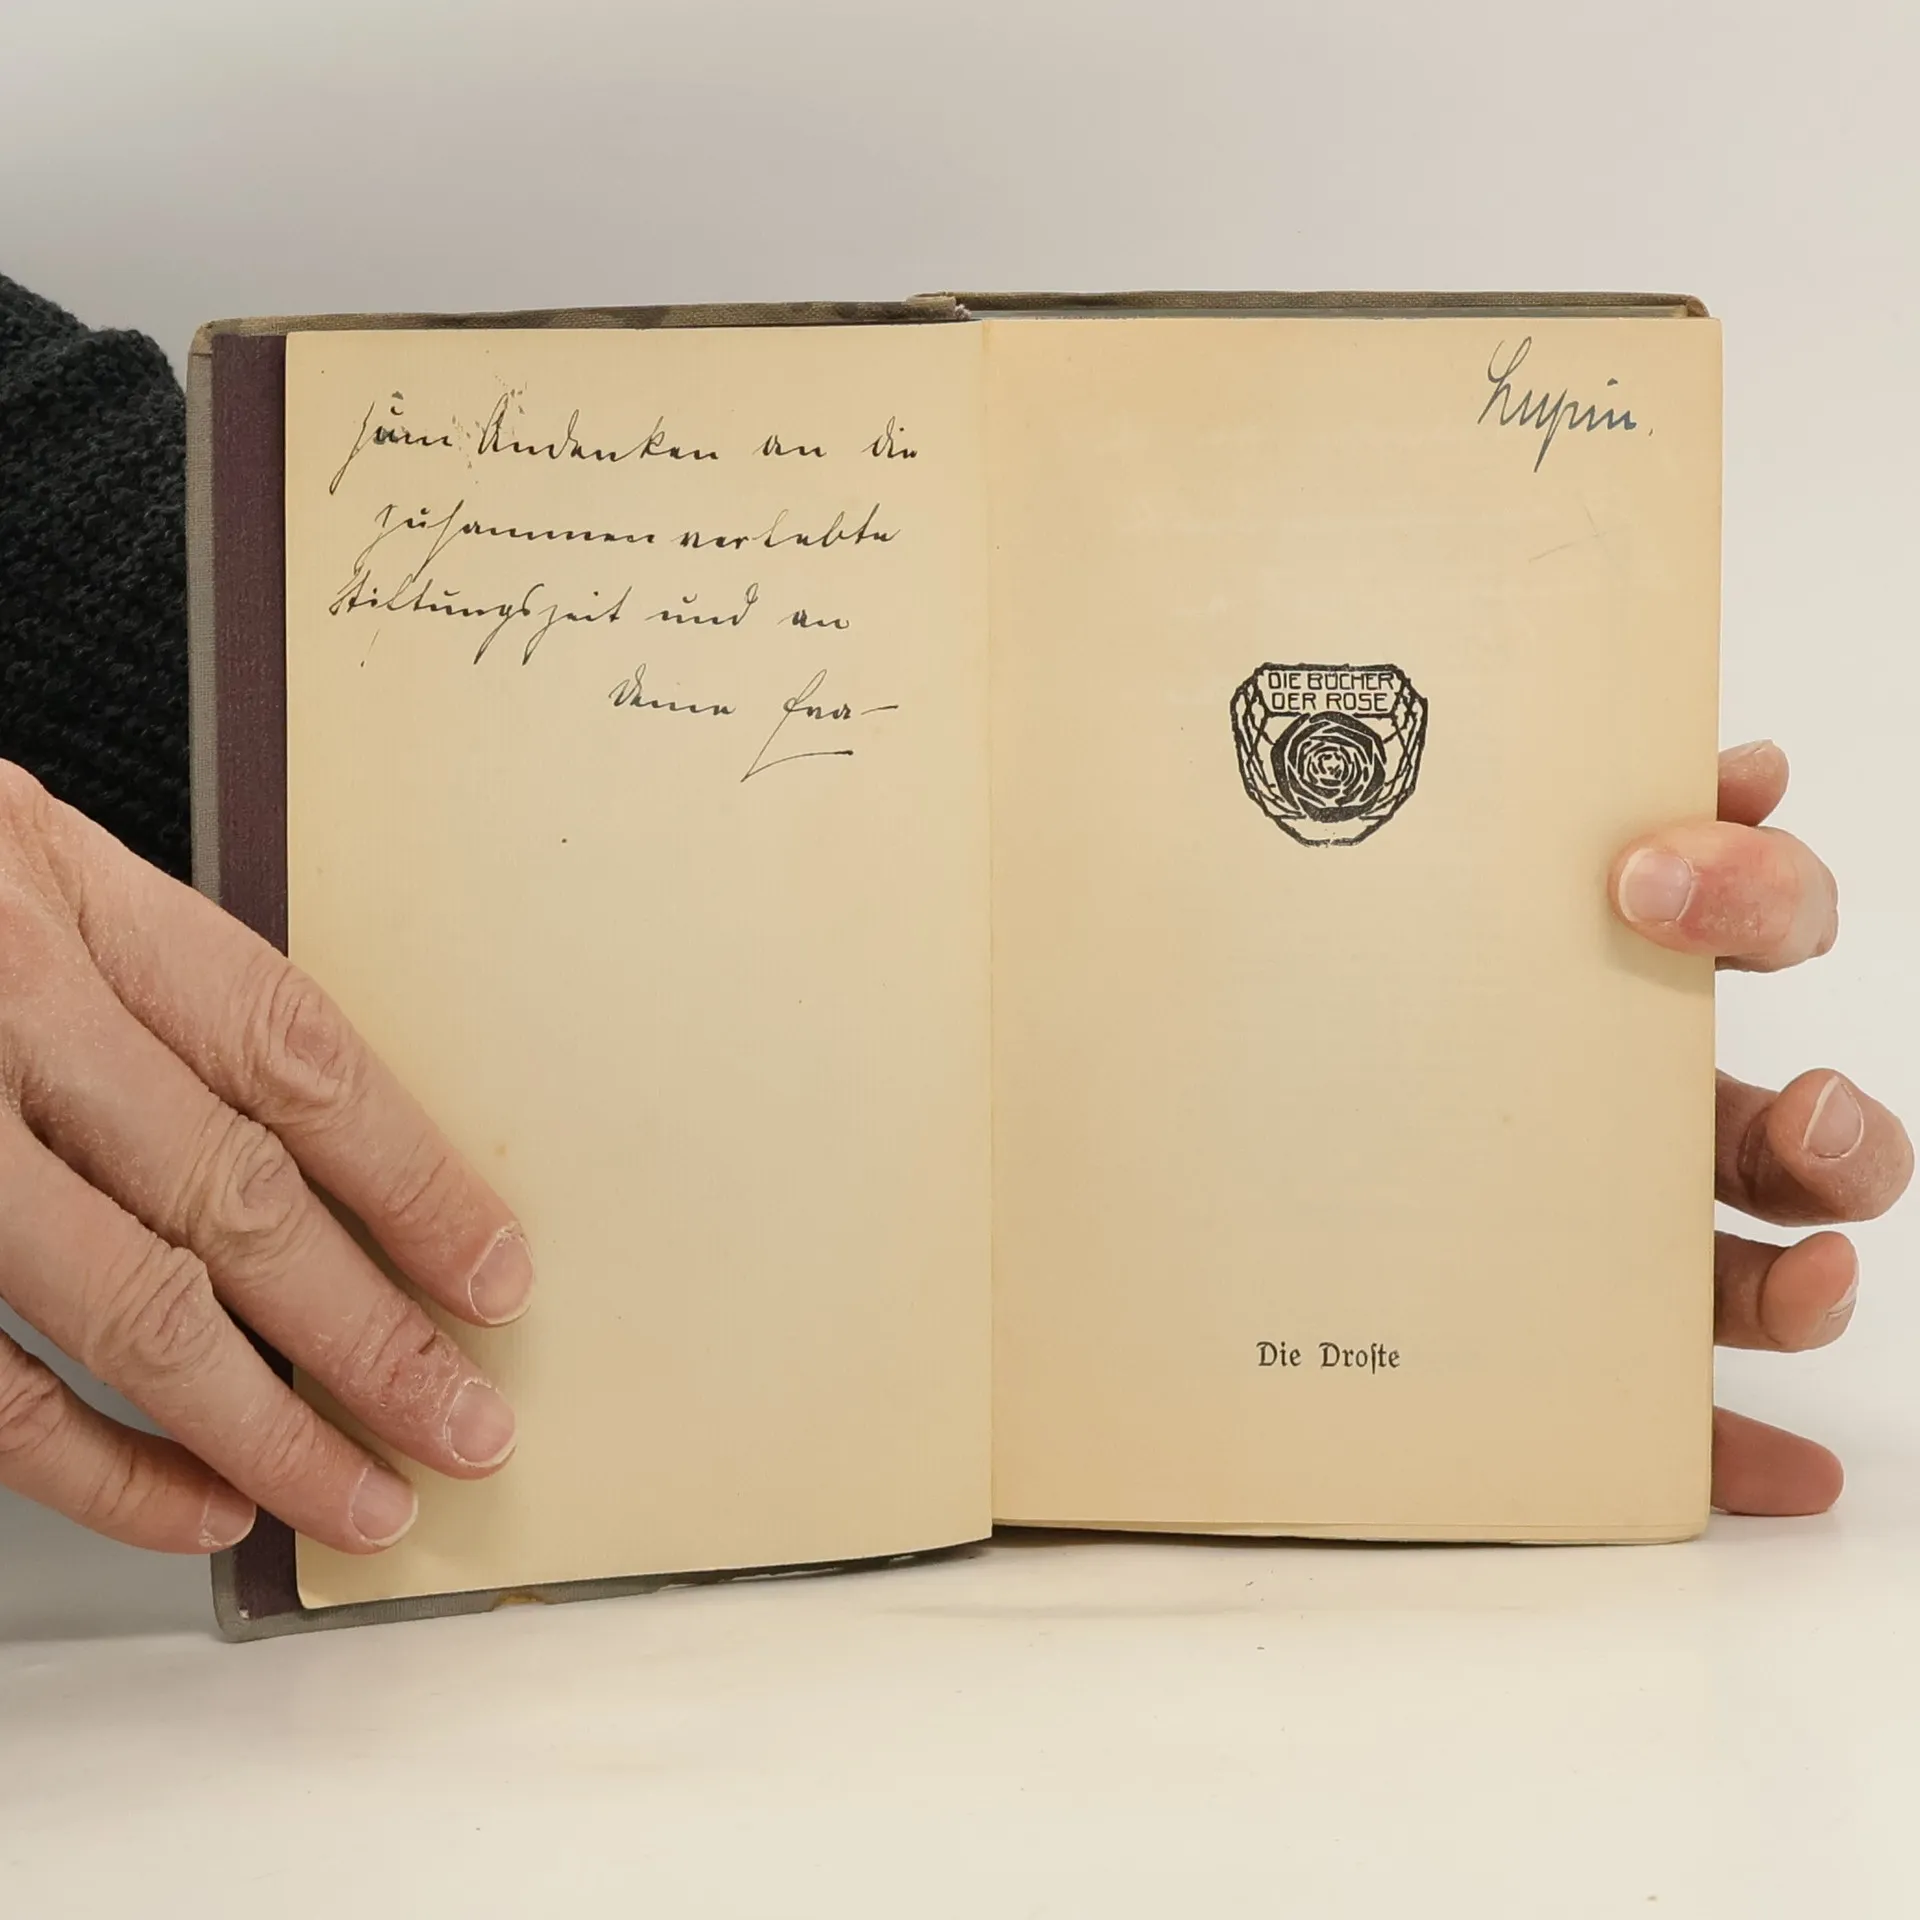 Zum Andenken an die
zusammen verlebte
Stiftungszeit und an
Deine Eva
Lupin.
DIE BÜCHER
DER ROSE
Die Droſte